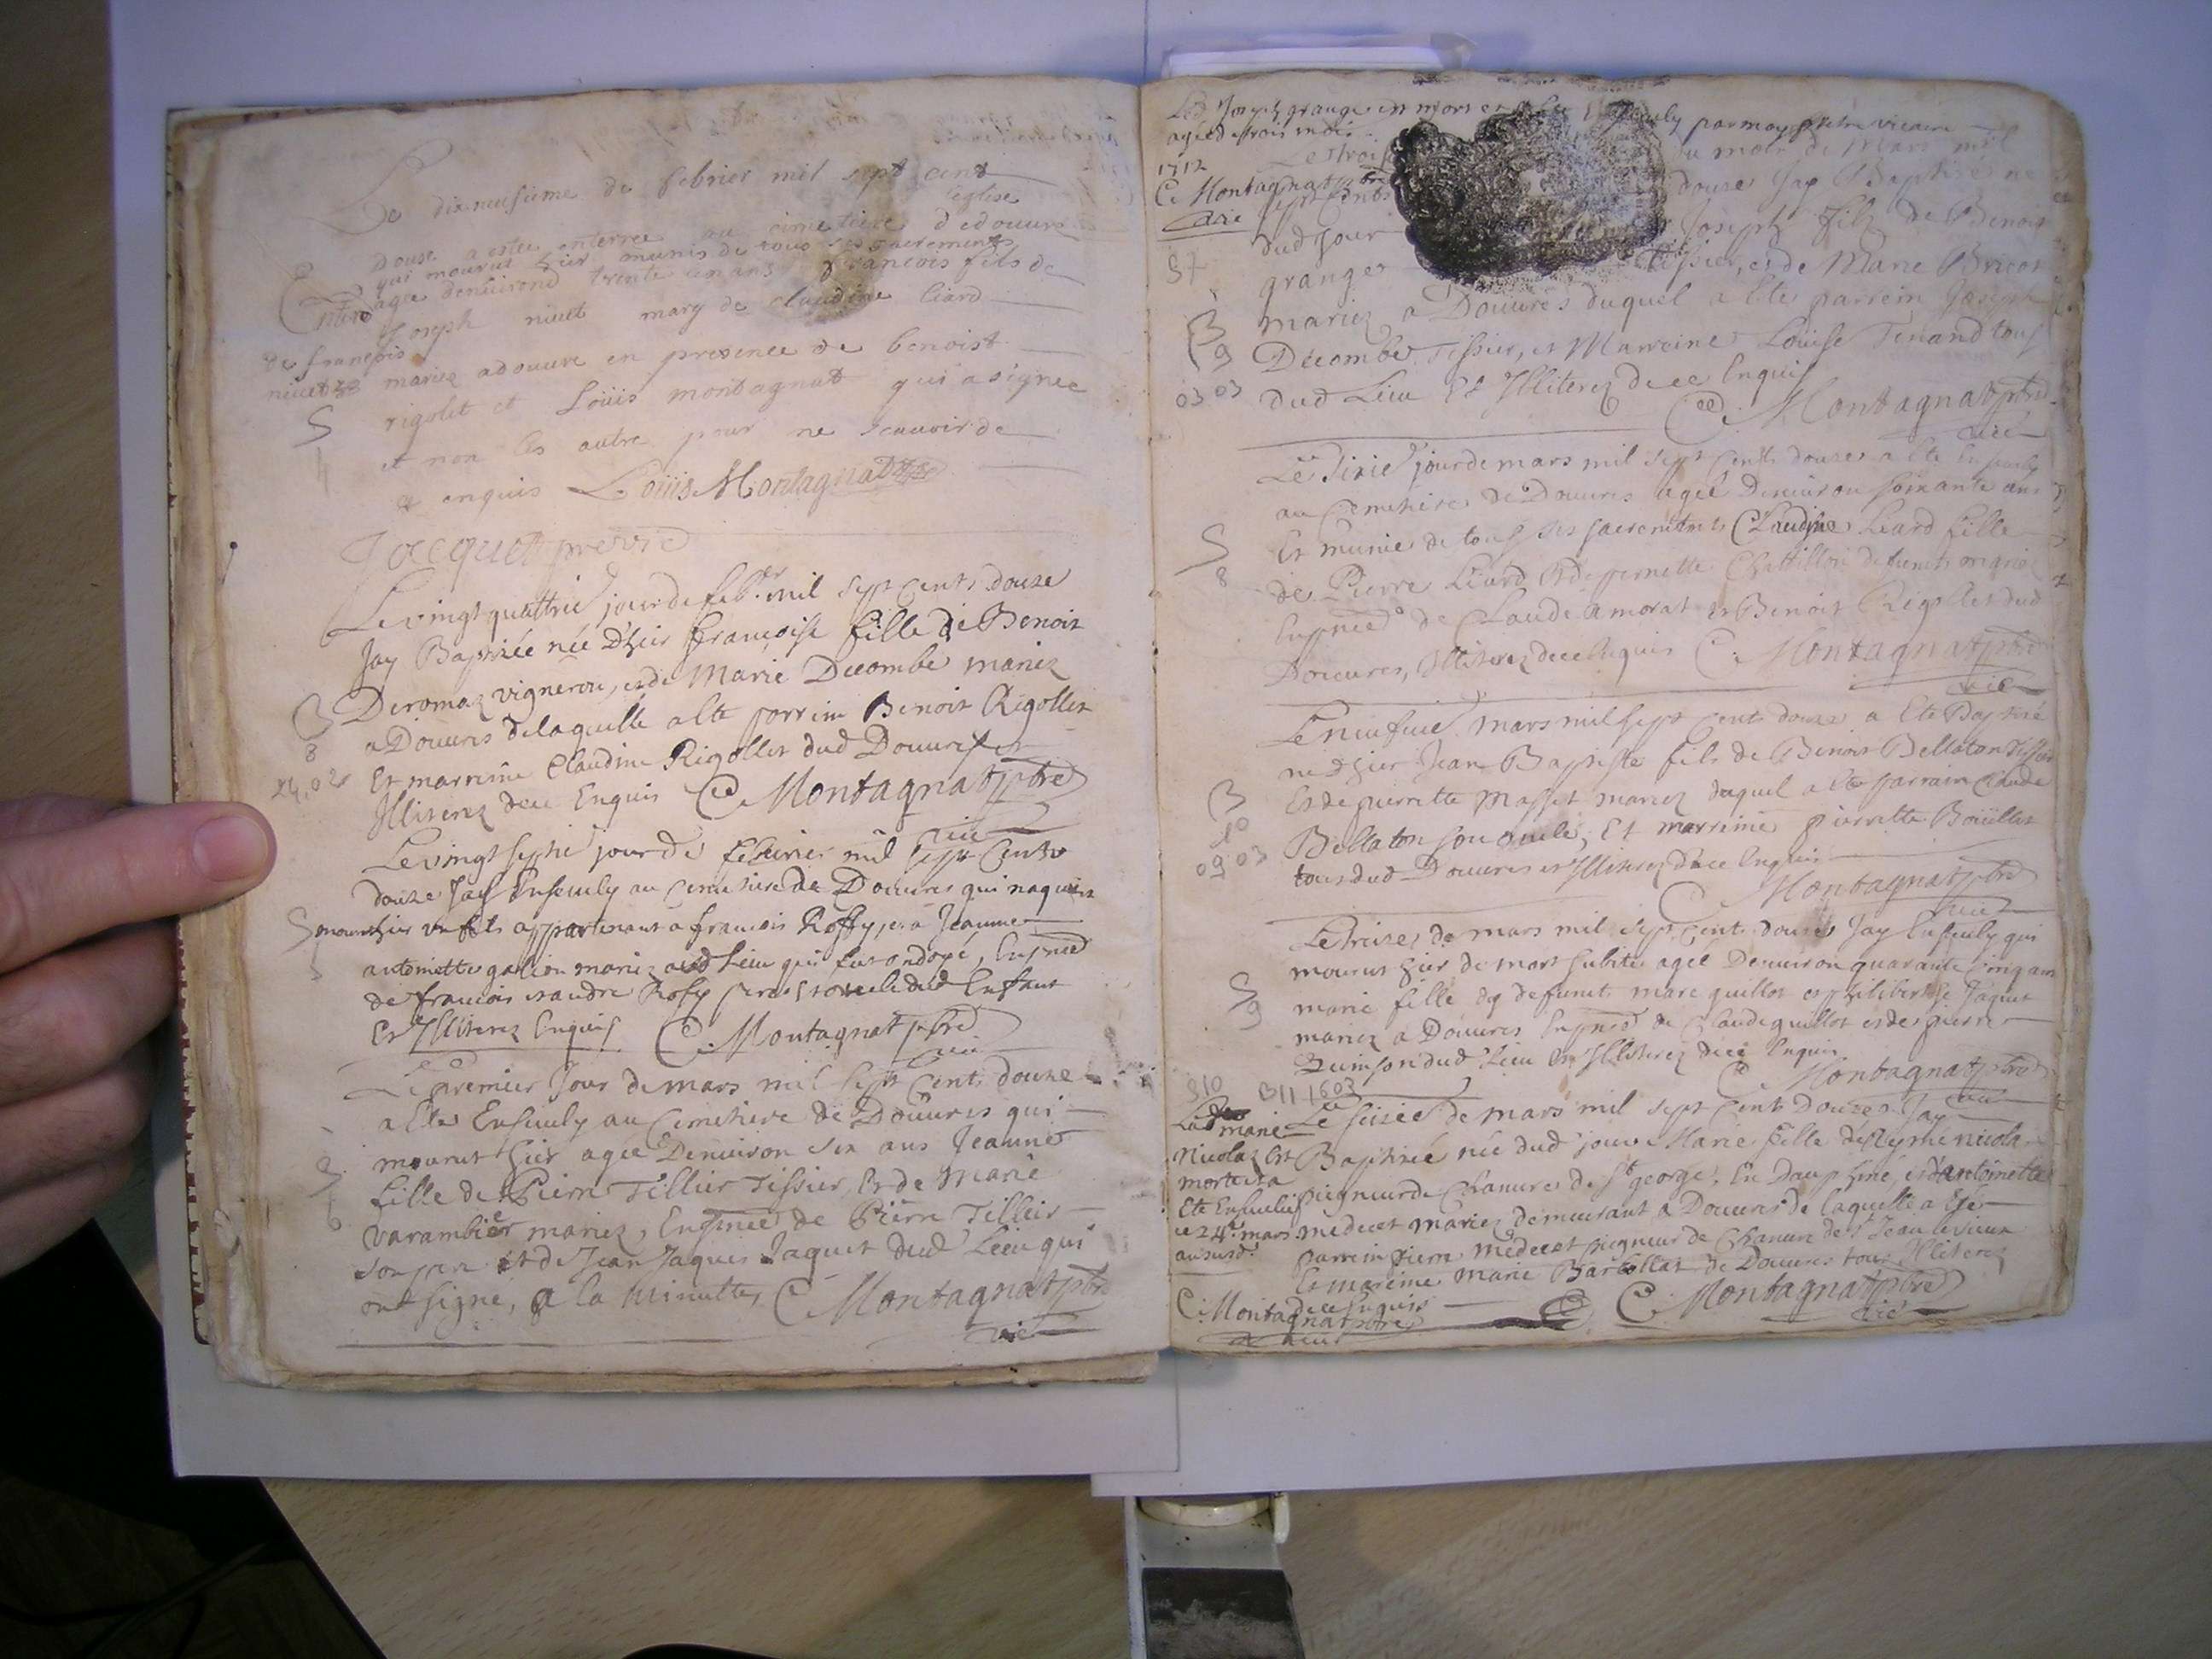 Le dixneufieme de febvrier mil sept cent
douse a estee enterree au cimetiere d l'eglise dedouvre
qui mourut hier munis de tous ses sacrements
age denvirond trente un ans francois fils de
Joseph niuet mary de claudine liard
de francois
niuet mariez adouvre en presence de benoist
rigolet et Loüis montagnat qui a signee
et non les autre pour ne scauvoir de
ce enquis Loüis Montagnat
Jacquet prevre
S
Le vingt quattrie jour de feb.er mil sept cents douze
Jay Baptizée née D'hier françoise fille de Benoit
Deromaz vigneron, et de Marie Decombe mariez
B
8
24.02
a Douvres de laquelle a ete parrein Benoit Rigollet
Et marreine Claudine Rigollet dud Douvres
Jlliterez de ce Enquis C. Montagnat ptre
vic
Le vingt septie jour de febvrier mil sept Cents
douze Jay Ensevely au Cemetiere de Douvres qui naquit et
S mourut hier un fils appartenant a francois Roffy, et a Jeanne
antoinette galion mariez aud Lieu qui fut ondoyé, En pnce
de francois et andre Rofy pere et oncle dud Enfant
Et Jlliterez Enquis C. Montagnat ptre
vic
Le premier Jour de mars mil sept Cents douze
a Ete Ensevely au Cemetiere de Douvres qui
mourut hier agée Denviron six ans Jeanne
S
6
fille de Pierre Tillier Tissier, Et de Marie
varambier mariez, En pnce de Pierre Tillier
son pere et de Jean Jaques Jaquet dud Lieu qui
ont signé, a la minutte, C. Montagnat ptre
vic
Led Joseph grange est mort et a Ete Ensevely par moy ptre vicaire
agé de trois mois
1712
C. Montagnat ptre
vic
Le trois du mois de Mars mil
sept Cents douze Jay Baptizé ne
dud Jour Joseph fils de Benoit
S7
granger Tissier, et de Marie Bricot
mariez a Douvres duquel a Ete parrein Joseph
B
9
03 03
Decombe Tissier, et Marreine Louise Tenand tous
dud Lieu Et Jlliterez de ce Enquis
C. Montagnat ptre
vic
Le Sixie jour de mars mil sept Cents douze a Ete Ensevely
au Cemetiere de Douvres agée Denviron soixante ans
S
8
Et munie de tous ses sacrements Claudine Liard fille
de Pierre Liard Et de pernette Chattillon defunts mariez
En pnce de Claude amorat et Benoit Rigollet dud
Douvres, Jlliterez de ce Enquis C. Montagnat ptre
vic
Le neufvie mars mil sept Cents douze a Ete Baptizé
ne d'hier Jean Baptiste fils de Benoit Bellaton Tissier
B
10
09 03
Et de pierrette Masset mariez duquel a Ete parrain Claude
Bellaton son oncle, Et marreine pierrette Boüillet
tous dud Douvres et Jlliterez de ce Enquis
C. Montagnat ptre
vic
Le treize de mars mil sept Cents douze Jay Ensevely qui
mourut hier de mort subite agée Denviron quarante Cinq ans
S
9
marie fille de defunct marc guillot et philiberte Jaquet
mariez a Douvres En pnce de Claude guillot et de pierre
dud Lieu et Jlliterez de ce Enquis
C. Montagnat ptre
vic
S10 B11 1603
Le seizie de mars mil sept Cents Douze Jay
Baptizée née dud jour Marie fille de Reymé nicola
pigneur de Chanvre de St george, En Dauphiné, et d'antoinette
medecet mariez demeurant a Douvres de laquelle a Ete
parrein pierre medecet pigneur de Chanvre de St Jean le vieux
Et mareine marie Barbollat de Douvres tous Jlliterez
de ce Enquis C. Montagnat ptre
vic
Lad marie
Nicolaz Est
morte et a
Ete Ensevelie
ce 24e mars
au susd.
C. Montagnat ptre
vic